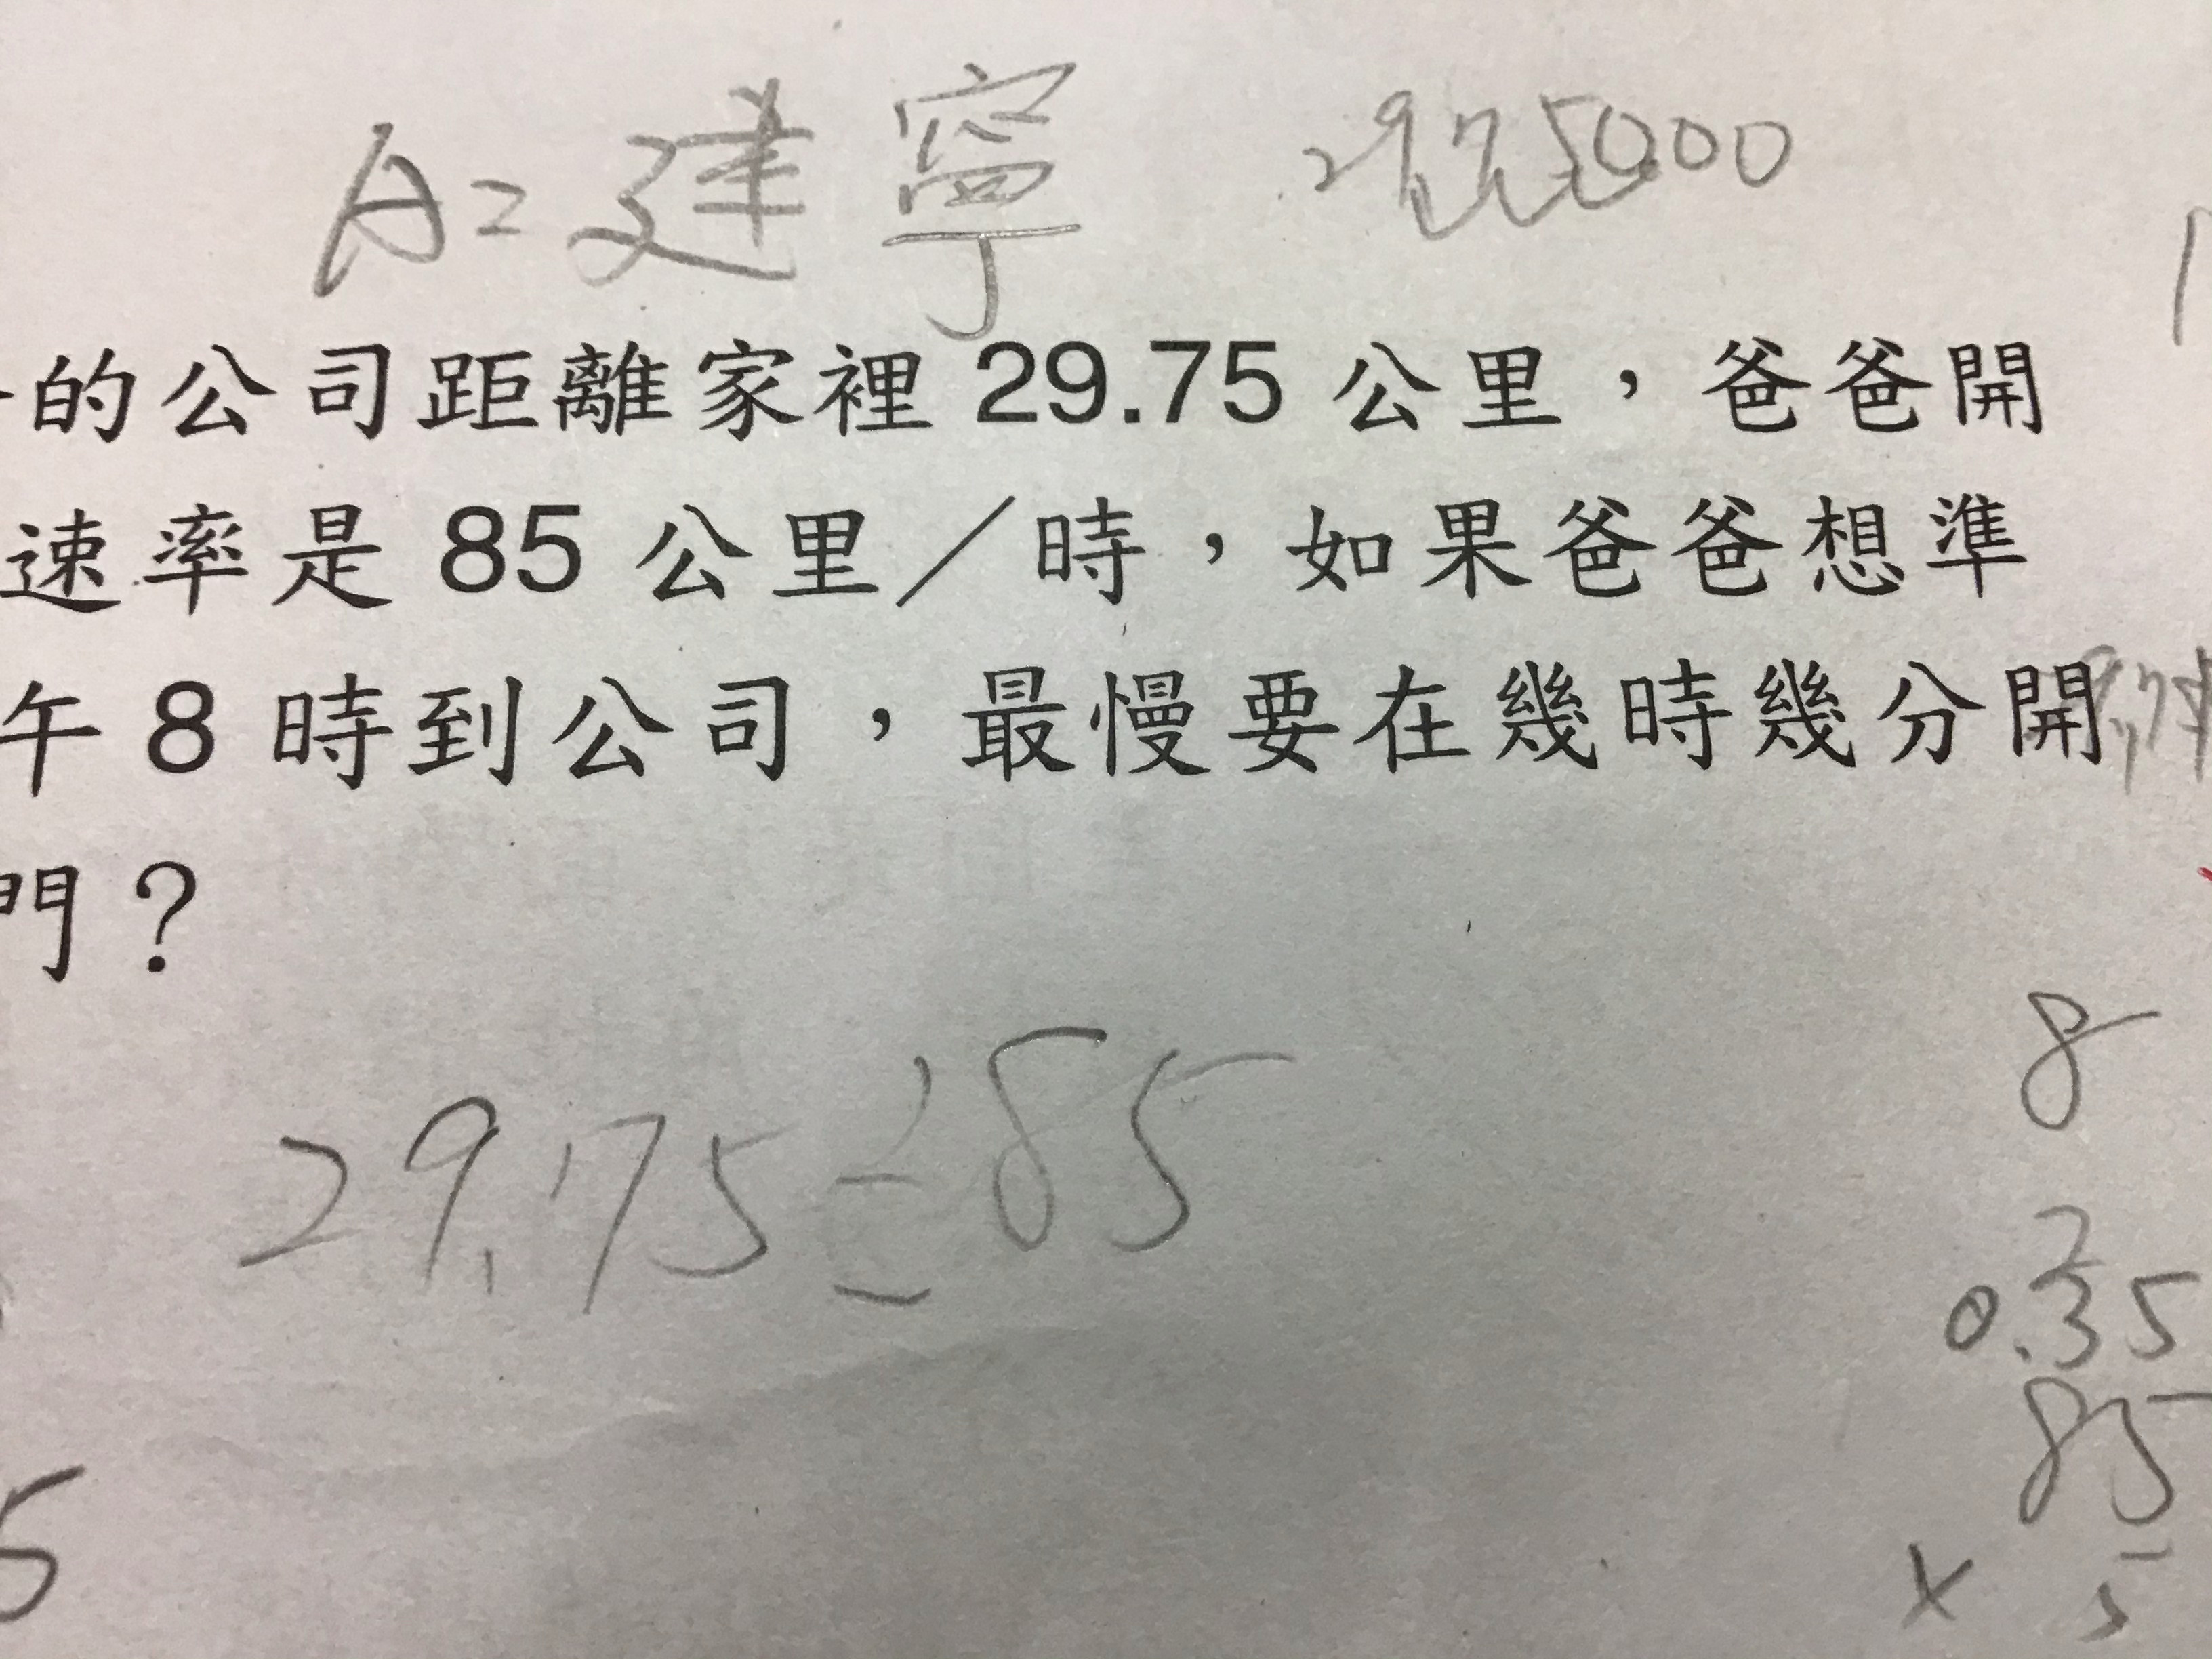 A=建寧
2975000
的公司距離家裡 29.75 公里，爸爸開
速率是 85 公里／時，如果爸爸想準
午 8 時到公司，最慢要在幾時幾分開
門？
29.75÷85
8
2
0.35
85
×
5